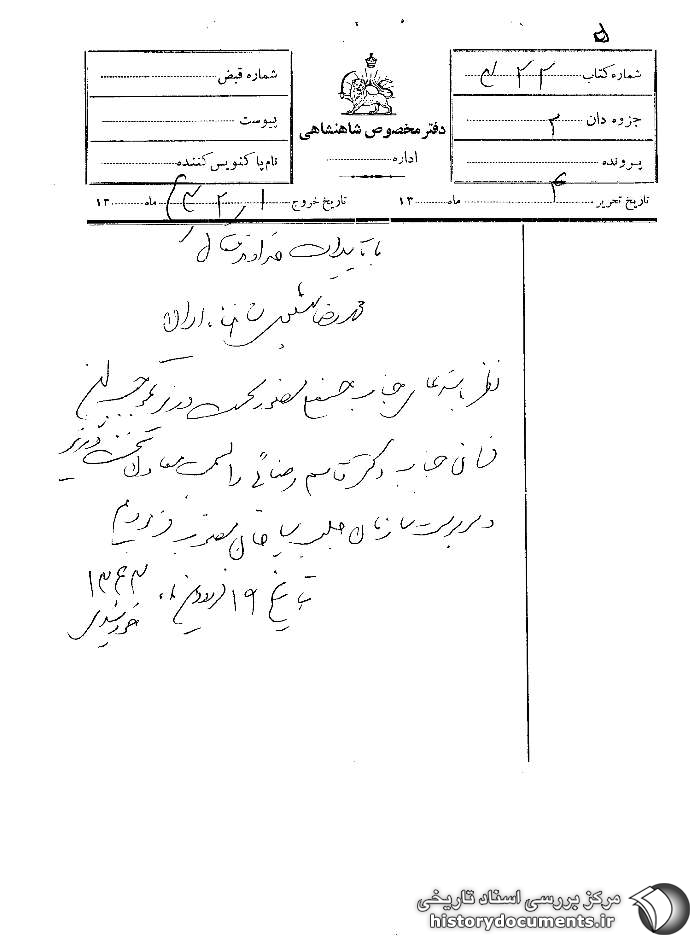 شماره کتاب ۲۲
جزوه دان ۳
پرونده
دفتر مخصوص شاهنشاهی
اداره
شماره قبض
پیوست
نام پاکنویس کننده
تاریخ تحریر ۴ ماه ۱۳
تاریخ خروج ماه ۱۳
با تأییدات خداوند متعال
محمدرضا پهلوی شاهنشاه ایران
نظر به استدعای جناب حسنعلی منصور نخست وزیر بموجب این
فرمان جناب دکتر قاسم رضائی را بسمت معاون نخست وزیر
و سرپرست سازمان جلب سیاحان منصوب فرمودیم
بتاریخ ۱۹ فروردین ماه ۱۳۴۳
خورشیدی
مرکز بررسی اسناد تاریخی
historydocuments.ir